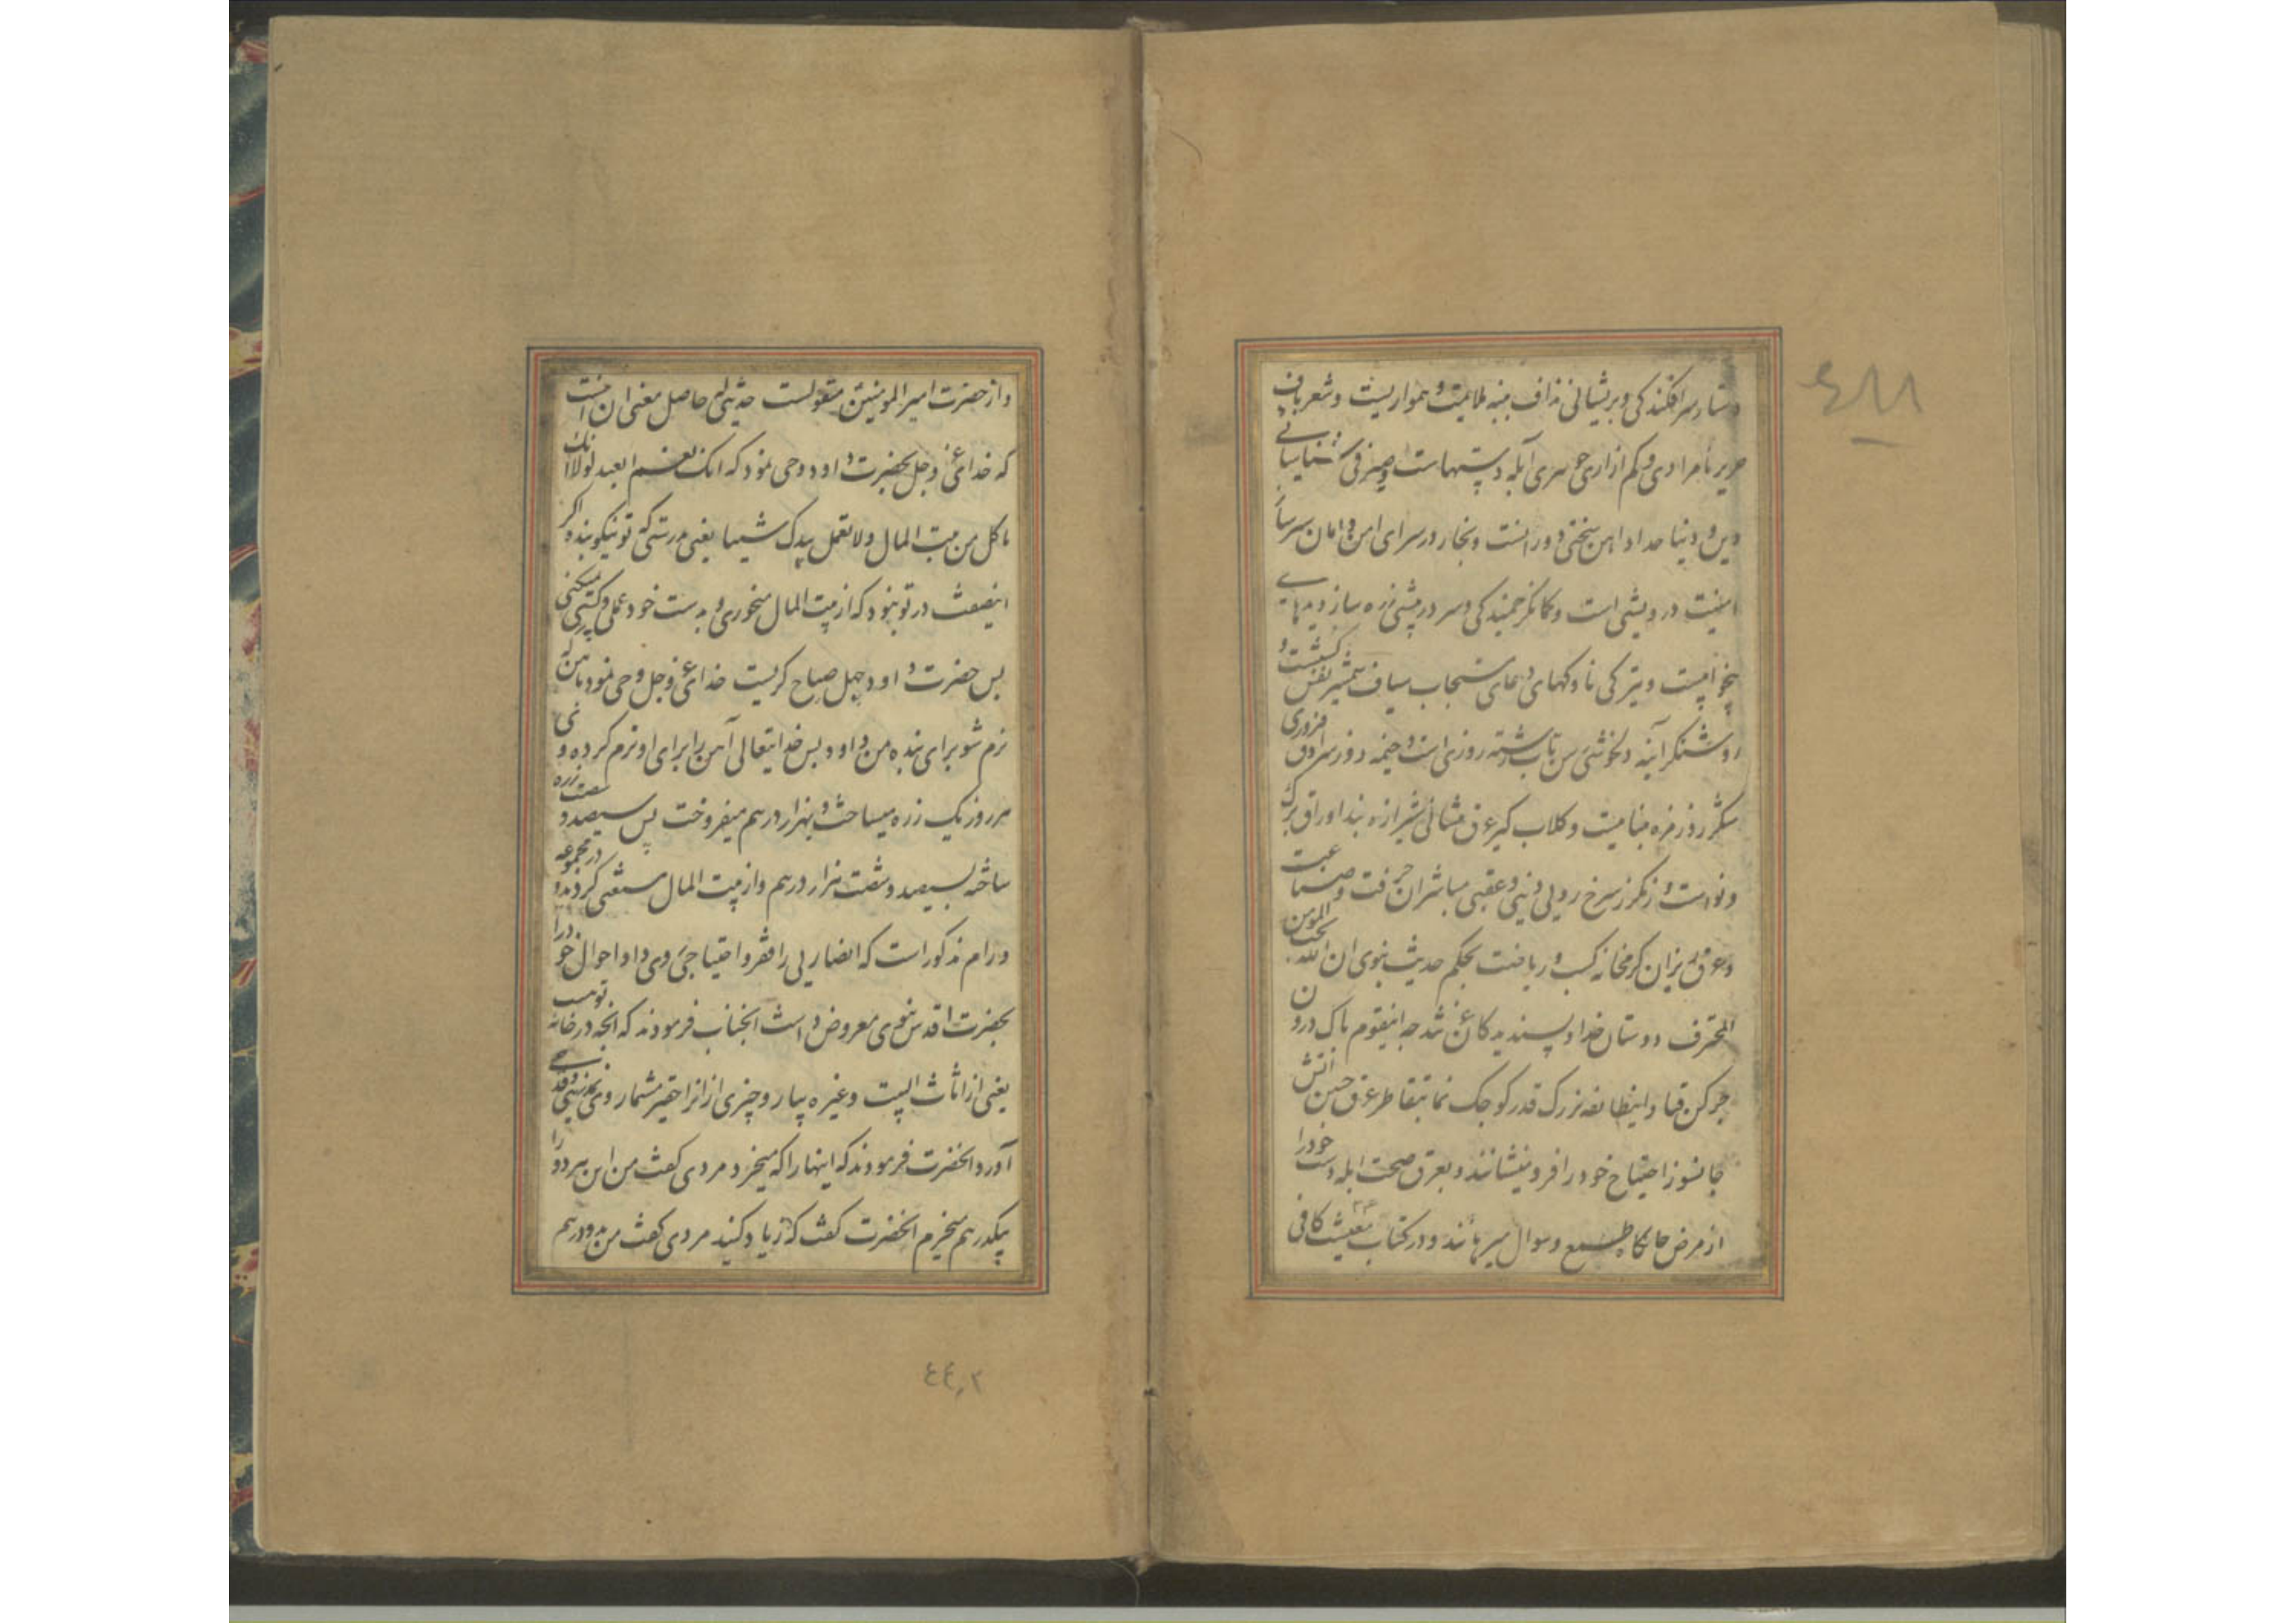 دستار سرافکندکی و پریشانی نداف پنبه ملایمت و همواریست و شعرباف
حریر نامرادی و کم ازاری جوهری آبله دستهاست و صیرفی شناسائے
دین و دنیا حداد اهن سختی دورانست و نجار در سرای امن و امان سر
است درویشی است و کمانگر خمیدکی و سر در پیشی زره ساز دیدهاے
و تیرکی ناوکهای دعای مستجاب سیاف شمشیر نفس کشیست و
روشنگر آینه دلخوشی رسن تاب رشته روزی است و خیمه دوز سرادق
روزمره و کلاب کیر عرق پیشانی شیرازه بند اوراق برک
و نواست و زرکر زر سرخ رویی دنیی و عقبی مباشران حرفت و صناعت
و عرق ریزان کرمخانه کسب و ریاضت بحکم حدیث نبوی ان الله یحب المومن
المحترف دوستان خدا و پسندیدکانند چه اینقوم پاک درون
چرکین قبا و اینطایفه بزرک قدر کوچک نما بتقاطر عرق جبین اتش
جانسوز احتیاج خود را فرو مینشانند و بعرق صحت ابله دست خود را
از مرض جانکاه طمع و سوال میرهانند و در کتاب معیشت کافی
٤٨٨
و از حضرت امیر المومنین منقولست حدیثی که حاصل معنی ان اینست
که خدای عز و جل بحضرت داود وحی نمود که انک نعم العبد لولا انک
تاکل من بیت المال و لا تعمل بیدک شیئا یعنی بدرستی که تو نیکو بنده اکر
اینصفت در تو نبود که از بیت المال میخوری و بدست خود عملی و کسبی نمیکنی
پس حضرت داود چهل صباح کریست خدای عز و جل وحی نمود باهن که
نرم شو برای بنده من داود پس خدایتعالی آهن را برای او نرم کرده و
هر روز یک زره میساخت و بهزار درهم میفروخت پس سیصد و شصت زره
ساخته بسیصد و شصت هزار درهم و از بیت المال مستغنی کردید و در مجموعه
ورام مذکور است که انصاریی را فقر و احتیاجی روی داد احوال خود را
بحضرت اقدس نبوی معروض داشت انجناب فرمودند که انچه در خانه تو هست
یعنی از اثاث البیت و غیره بیار و چیزی از انرا حقیر مشمار و قدحے
آورد انحضرت فرمودند که اینها را که میخرد مردی کفت من این هر دو را
بیکدرهم میخرم انحضرت کفت که زیاد کند مردی کفت من بدو درهم